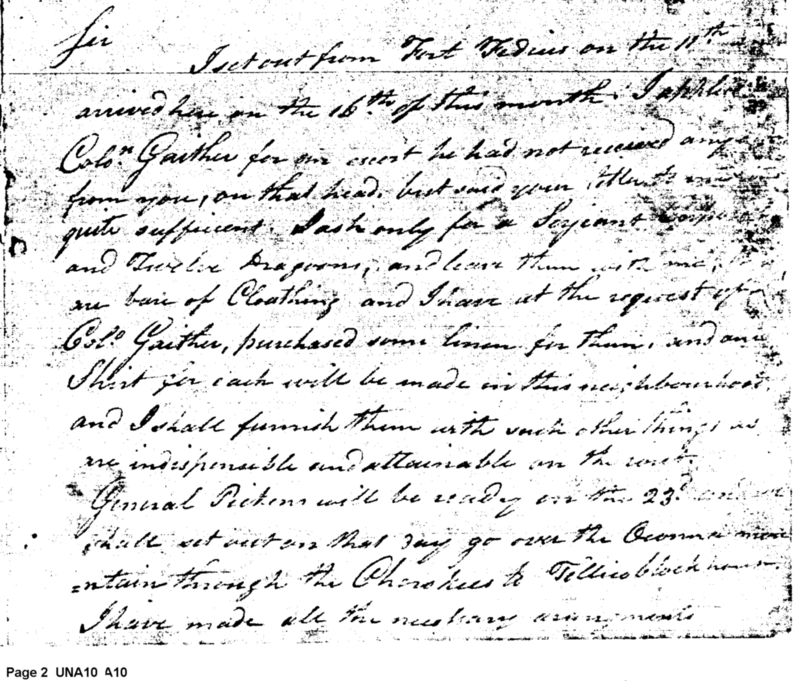 Sir
I set out from Fort Fidius on the 11th
arrived here on the 16th of this month. I applied
Colon Gaither for an escort he had not received any
from you, on that head, but said your letter to me
quite sufficient. I ask only for a Serjeant
and Twelve Dragoons, and leave them with me,
are bare of Cloathing and I have at the request of
Colo Gaither, purchased some linen for them, and one
Shirt for each will be made in this neighbourhood,
and I shall furnish them with such other things as
are indispensible and attainable on the rout.
General Pickens will be ready on the 23d and we
shall set out on that day go over the Oconna moun
=ntain through the Cherokees to Tellico blockhouse.
I have made all the necessary arangements
Page 2 UNA10 A10